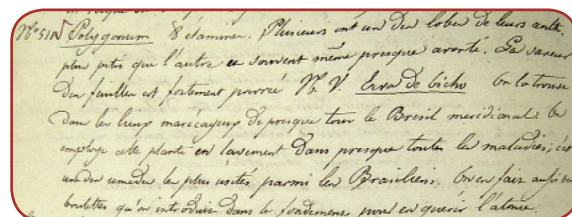 Nº 51 N Polygonum 8 étamines. Plusieurs ont un des lobes de leurs anth.
plus petits que l'autre et souvent même presque avorté. La saveur
des feuilles est fortement poivrée N. V. Erva de bicho On la trouve
dans les lieux marécageux de presque tout le Bresil meridional. On
employe cette plante en lavement dans presque toutes les maladies; c'est
un des remedes les plus usités parmi les Brasiliens. On en fait aussi des
boulettes qu'on introduit dans le fondement pour en guérir l'atonie.